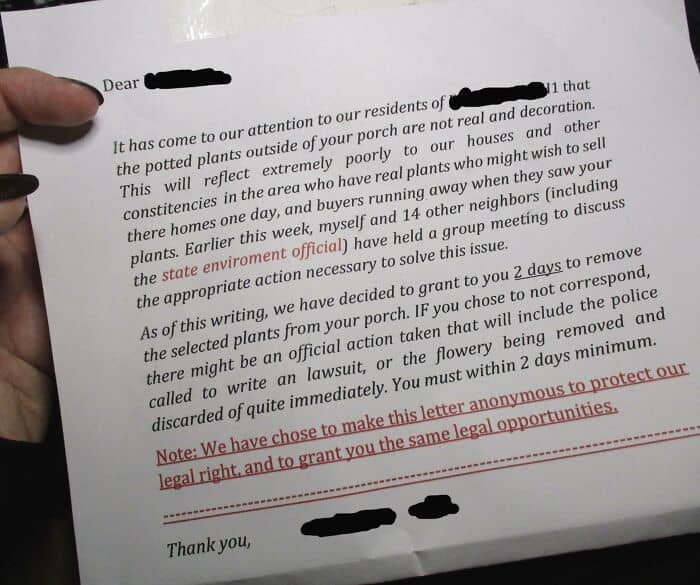 Dear
It has come to our attention to our residents of 1 that
the potted plants outside of your porch are not real and decoration.
This will reflect extremely poorly to our houses and other
constitencies in the area who have real plants who might wish to sell
there homes one day, and buyers running away when they saw your
plants. Earlier this week, myself and 14 other neighbors (including
the state enviroment official) have held a group meeting to discuss
the appropriate action necessary to solve this issue.
As of this writing, we have decided to grant to you 2 days to remove
the selected plants from your porch. IF you chose to not correspond,
there might be an official action taken that will include the police
called to write an lawsuit, or the flowery being removed and
discarded of quite immediately. You must within 2 days minimum.
Note: We have chose to make this letter anonymous to protect our
legal right, and to grant you the same legal opportunities.
Thank you,